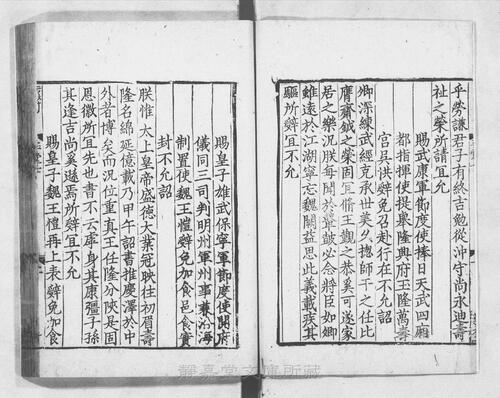 乎勞謙君子有終吉勉從沖守尚永迪壽
祉之榮所請宜允
賜武康軍節度使捧日天武四廂
都指揮使提舉隆興府玉隆萬壽
宮吳拱辭免召赴行在不允詔
卿深練武經克承世美久揔師干之任比
膺齋鉞之榮固宜脩王觀之恭奚可遂家
居之樂況朕每聞於鼙鼓必念將臣如卿
雖遠於江湖寧忘魏闕益思此義載疾其
驅所辭宜不允
賜皇子雄武保寧軍節度使開府
儀同三司判明州軍州事兼沿海
制置使魏王愷辭免加食邑食實
封不允詔
朕惟太上皇帝盛德大業冠映往初眉壽
隆名綿延億載乃甲午詔書推慶澤於中
外者博矣而況位重真王任隆分陝是固
恩徽所宜先也書不云虖身其康彊子孫
其逢吉尚奚遜焉所辭宜不允
賜皇子魏王愷再上表辭免加食
靜嘉堂文庫所藏